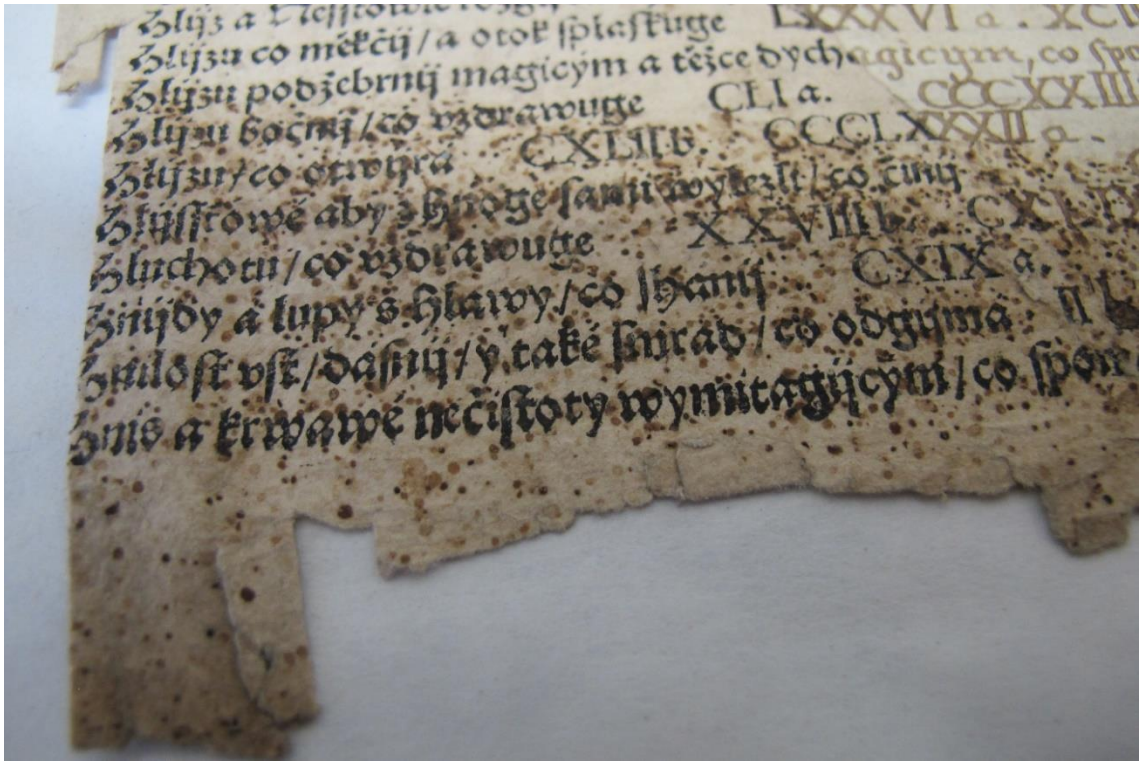 Hlijz a
LXXXVI a .
Hlijzu co měkčij/a otok splaskuge
Hlijzu podžebrnij magicým a těžce dychagicým, co
Hlijzu bočnij/co vzdrawuge CLI a. CCCXXIII
Hlijzu/co otwijrá CXLIII b. CCCLXXXXII a .
Hlijsstowé aby z hnoge sami wylezli/co činij
Hluchotu/co vzdrawuge XXVIII b.
Hnijdy a lupy s hlawy/co shánij CXIX a.
Hnilost vst/dásnij/y také smrad/co odgijmá. II
Hnis a krwawé nečistoty wymítagijcým/co spom